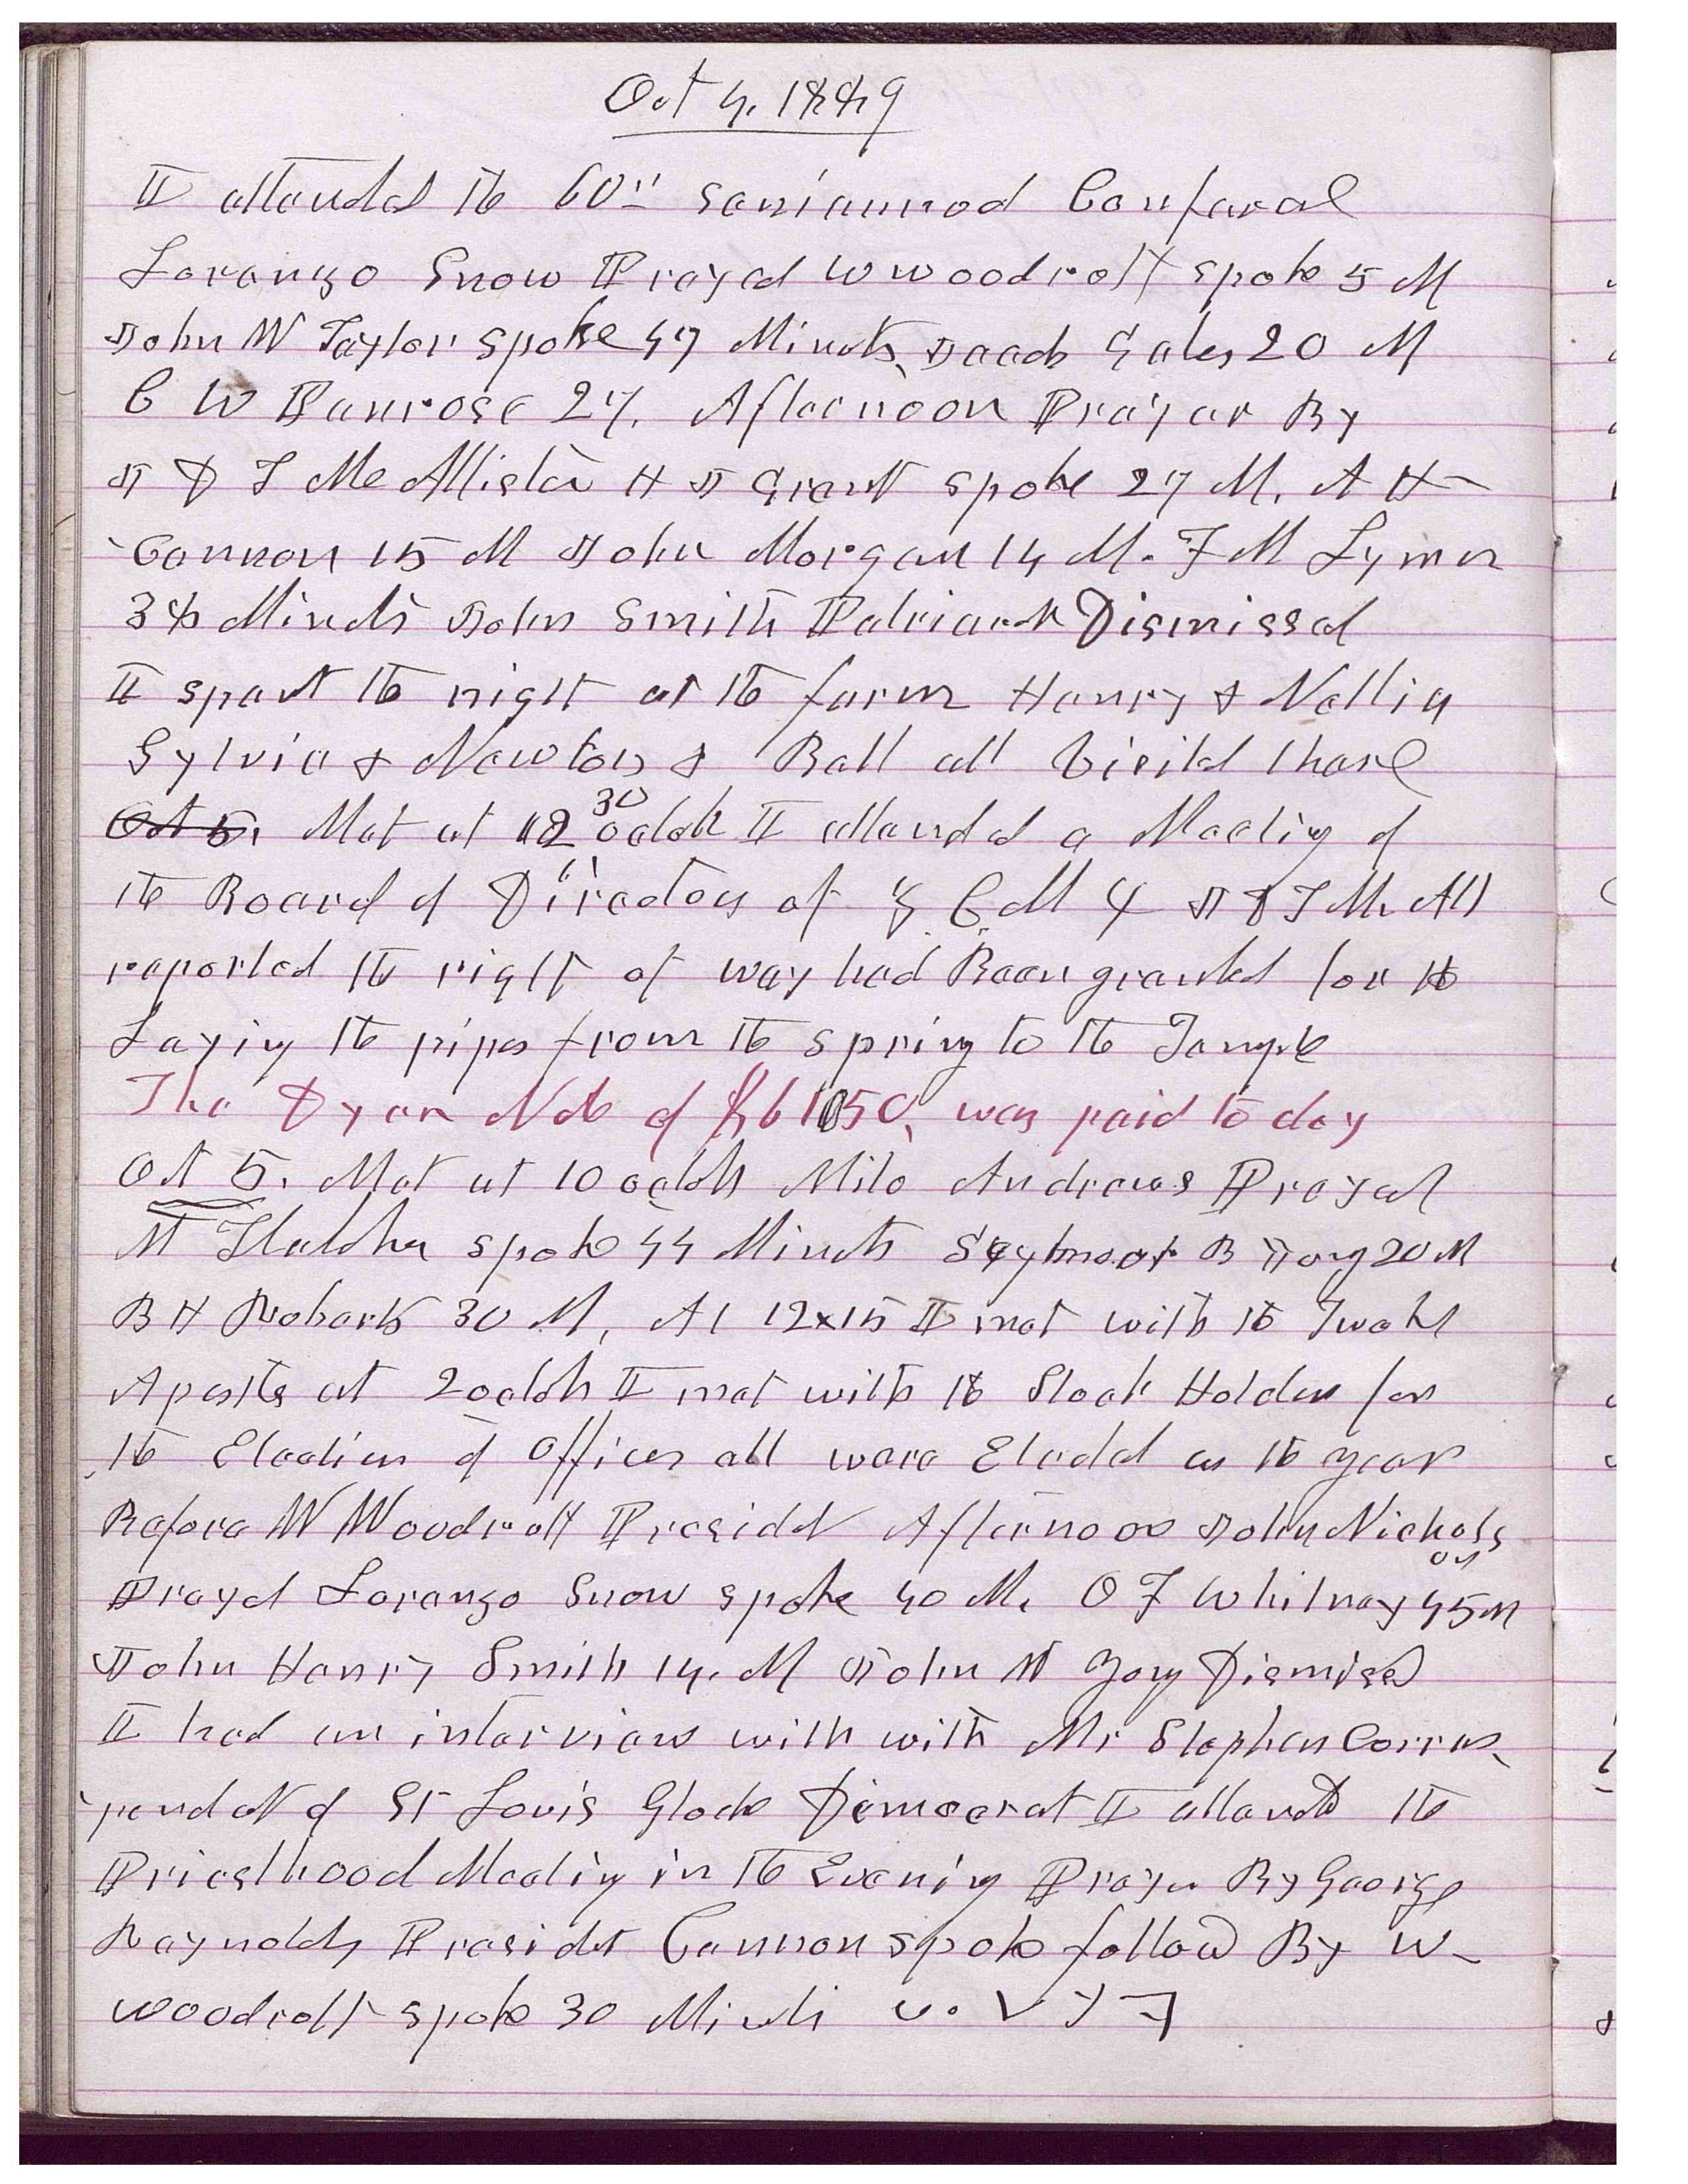 Oct 4, 1889
I attended the 60th Semiannual Conferel
Lorenzo Snow Prayed W Woodruff spoke 5 M
John W Taylor spoke 47 Minuts, Jacob Gates 20 M
C W Penrose 27. Afternoon Prayer By
J D T McAllister H J Grant spoke 27 M. A H
Cannon 15 M John Morgan 14 M. F M Lyman
38 Minuts John Smith Patriarch Dismissed
I spent the night at the farm Henry & Nellie
Sylvia & Newton & Bell all visited thare
Oct 5. Met at 12 30 oclok I attended a Meeting of
the Board of Directors of Z C M I J D T McAll
reported the right of way had Been granted for the
Laying the pipes from the spring to the Temple
The Dyer Note of $61050, was paid to day
Oct 5. Met at 10 oclok Milo Andrews Prayed
M Thatcher spoke 44 Minuts Seymour B Young 20 M
B H Roberts 30 M, At 12x15 I met with the Twelve
Apostles at 2 oclok I met with the Stock Holders for
the Election of Officers all were Elected as the year
Before W Woodruff President Afternoon John Nicholson
Prayed Lorenzo Snow spoke 40 M. O F Whitney 45 M
John Henry Smith 14. M John W Young Dismised
I had an interview with with Mr Stephen Corres
pondent of St Louis Globe Democrat I attended the
Priesthood Meeting in the Evening Prayer By George
Reynolds President Cannon spoke followed By W
Woodruff spoke 30 Minuts